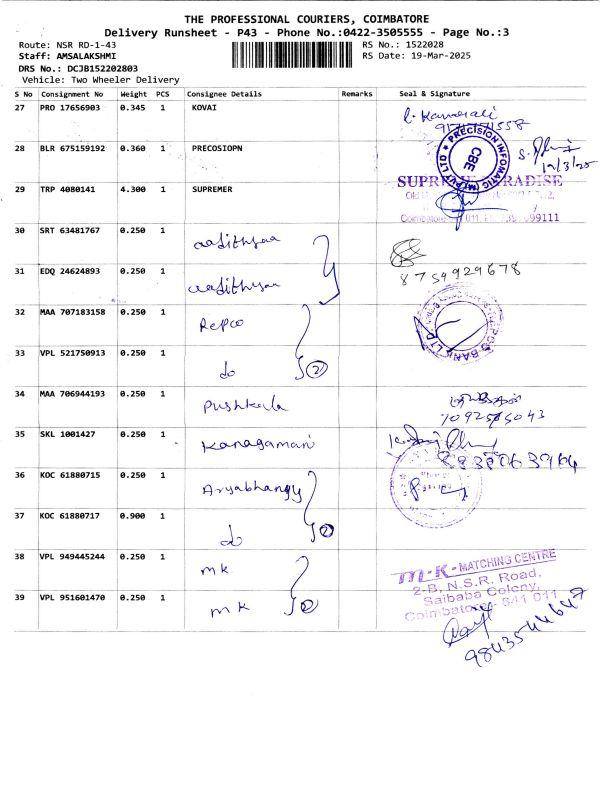 THE PROFESSIONAL COURIERS, COIMBATORE
Delivery Runsheet - P43 - Phone No.:0422-3505555 - Page No.:3
Route: NSR RD-1-43 RS No.: 1522028
Staff: AMSALAKSHMI RS Date: 19-Mar-2025
DRS No.: DCJB152202803
Vehicle: Two Wheeler Delivery
S No Consignment No Weight PCS Consignee Details Remarks Seal & Signature
27 PRO 17656903 0.345 1 KOVAI
28 BLR 675159192 0.360 1 PRECOSIOPN
PRECISION INFOMATIC (M) PVT LTD
CBE
29 TRP 4080141 4.300 1 SUPREMER
SUPREME PARADISE
30 SRT 63481767 0.250 1 aadithyaa
8754929678
31 EDQ 24624893 0.250 1 aadithyaa
32 MAA 707183158 0.250 1 Repco
REPCO BANK LTD
33 VPL 521750913 0.250 1 do 2
34 MAA 706944193 0.250 1 Pushkala
35 SKL 1001427 0.250 1 Kanagamani
36 KOC 61880715 0.250 1 Aryabhangy
37 KOC 61880717 0.900 1 do 2
38 VPL 949445244 0.250 1 mk
39 VPL 951601470 0.250 1 mk 2
M-K-MATCHING CENTRE
2-B, N.S.R. Road,
Saibaba Colony,
Coimbatore - 641 011
9843544647